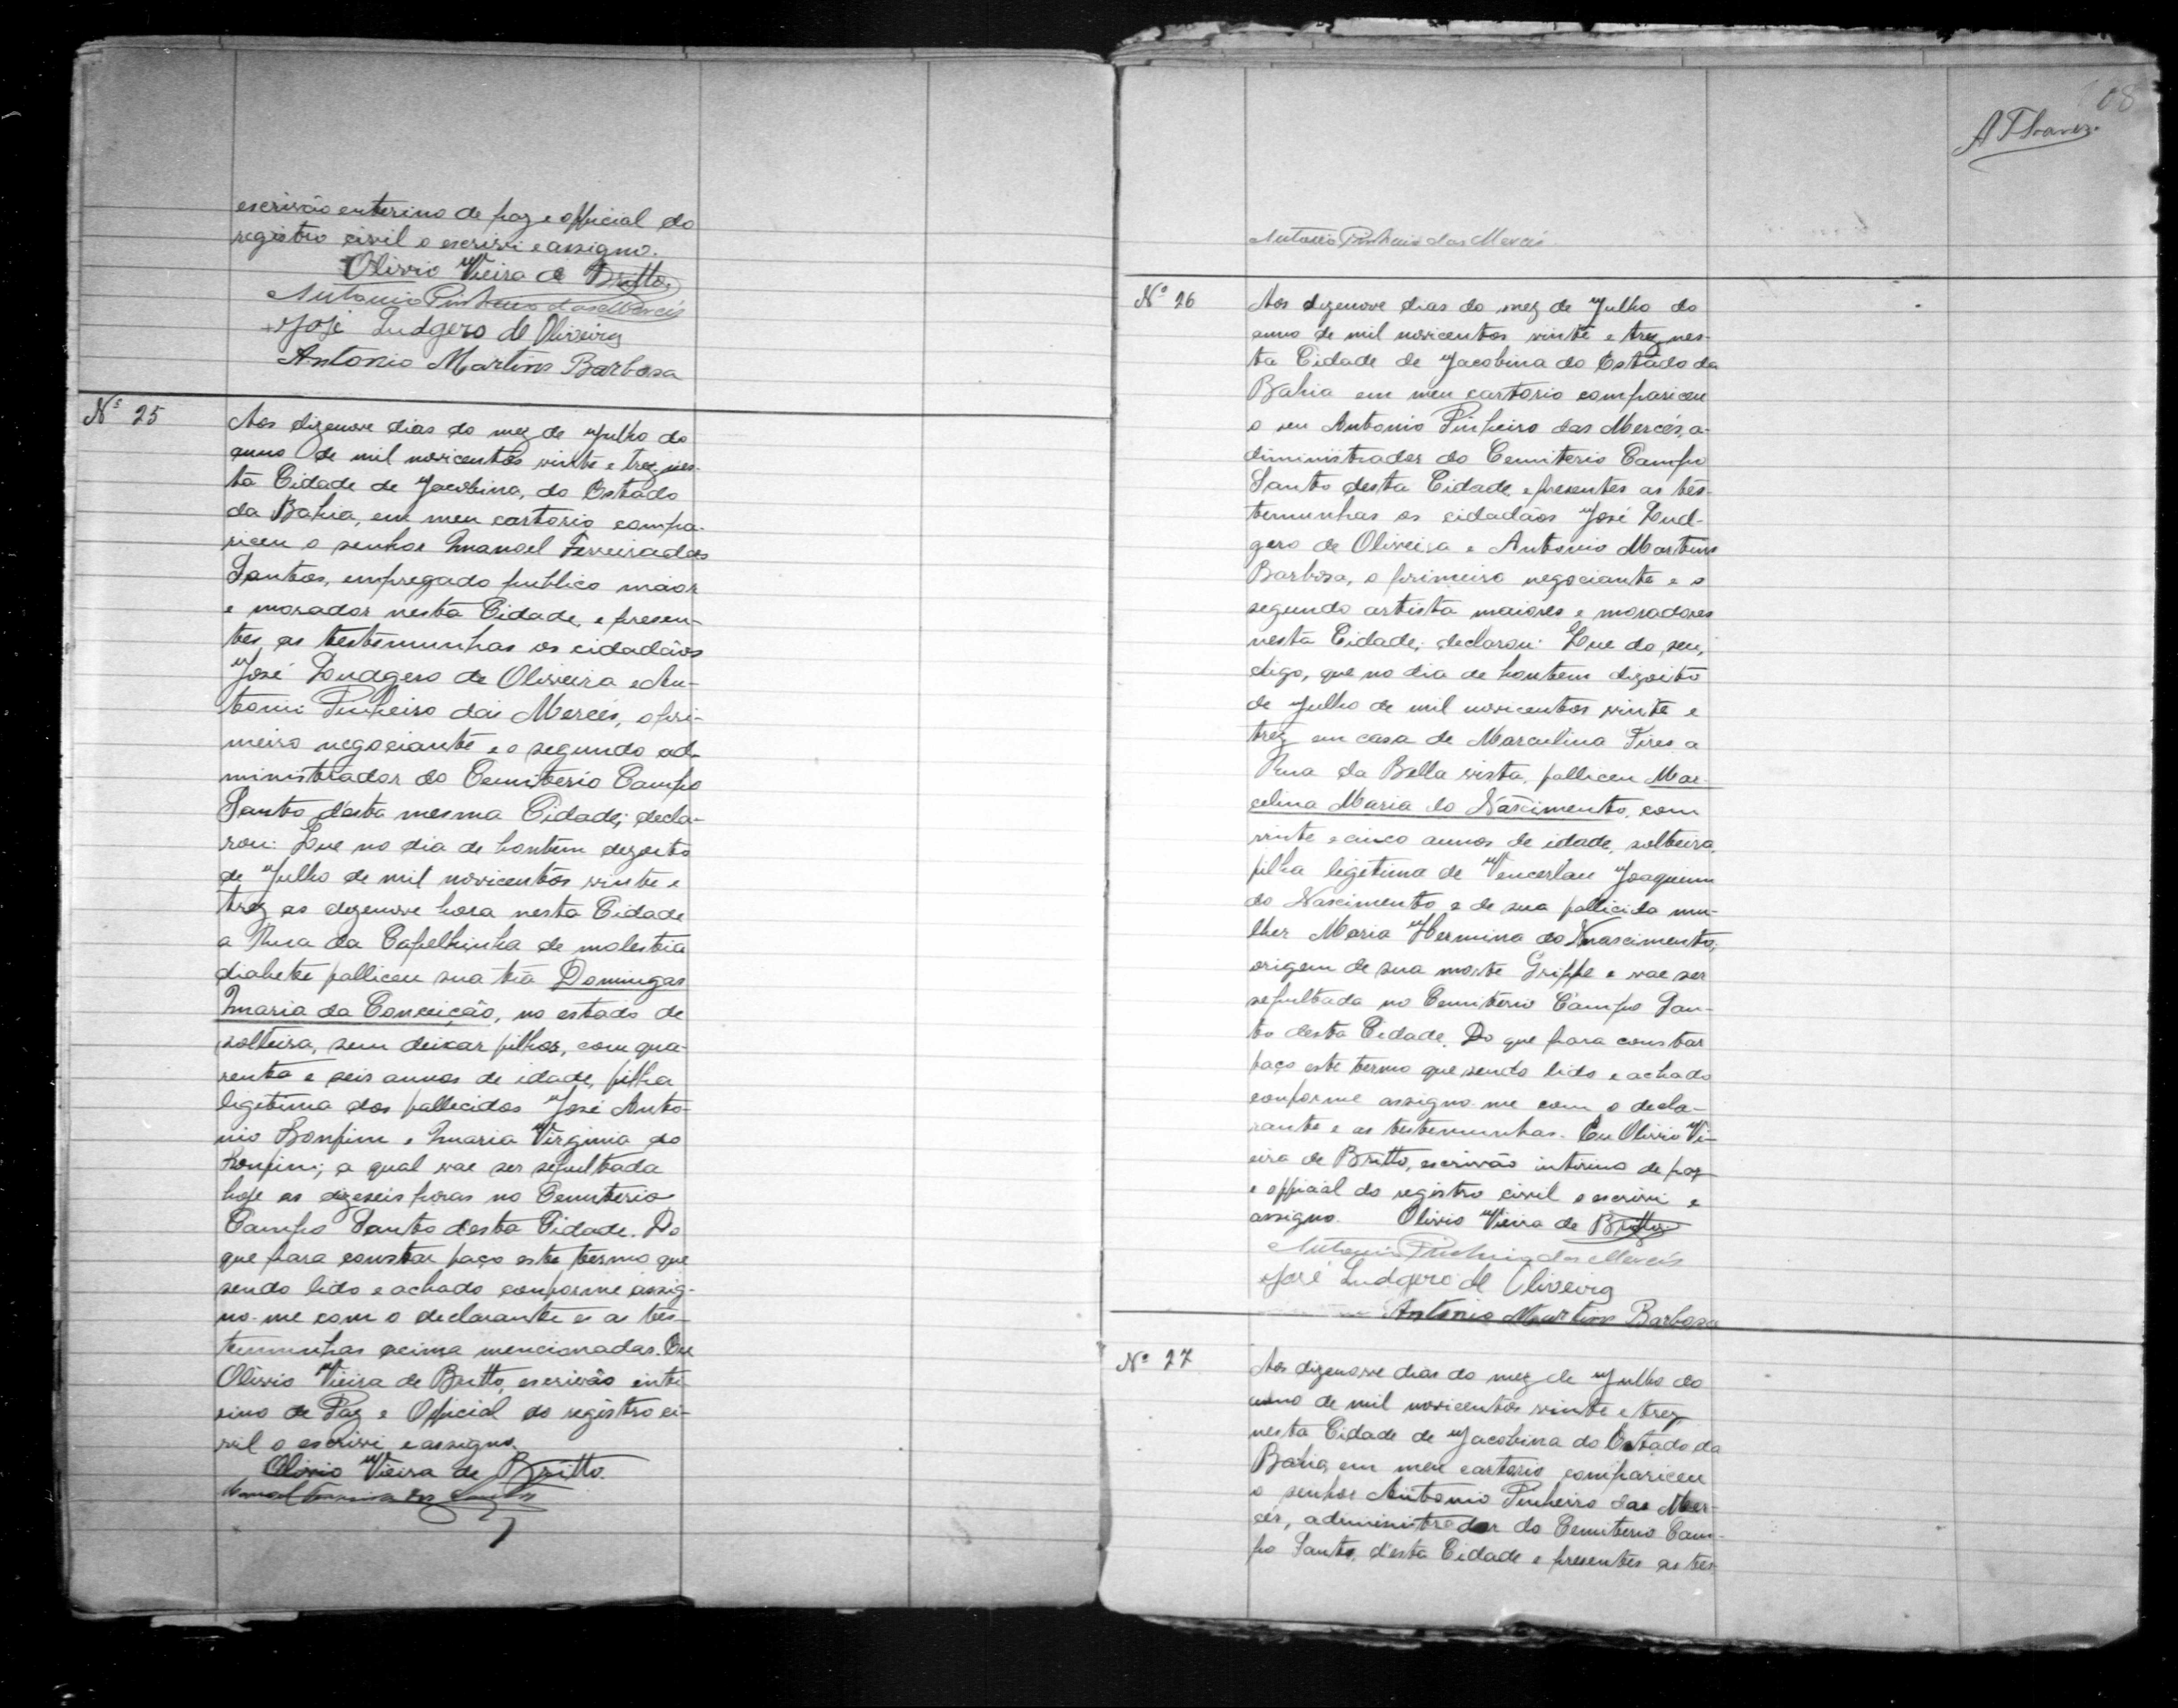 escrivão enterino de paz e official do
registro civil o escrivi e assigno.
Olivio Vieira de Britto
Antonio Pinheiro das Mercês
José Ludgero de Oliveira
Antonio Martins Barbosa
Nº 25
Aos dizenove dias do mez de Julho do
anno de mil novicentos vinte e trez nes-
ta Cidade de Jacobina, do Estado
da Bahia, em meu cartorio compa-
riceu o senhor Manoel Ferreira dos
Santos, empregado publico maior
e morador nesta Cidade, e presen-
tes as testemunhas os cidadãos
José Ludgero de Oliveira e An-
tonio Pinheiro das Mercês, o pri-
meiro negociante e o segundo ad-
ministrador do Cemiterio Campo
Santo desta mesma Cidade; decla-
rou: Que no dia de hontem dezoito
de Julho de mil novicentos vinte e
trez as dezenove hora nesta Cidade
a Rua da Capelhinha de molestia
diabete falliceu sua tia Domingas
Maria da Conceição, no estado de
solteira, sem deixar filhos, com qua-
renta e seis annos de idade, filha
legitima dos fallecidos José Anto-
nio Bonfim e Maria Virginia do
Bonfim; a qual vae ser sepultada
hoje as dizeseis horas no Cemiterio
Campo Santo desta Cidade. Do
que para constar faço este termo que
sendo lido e achado conforme assig-
no-me com o declarante e as tes-
temunhas acima mencionadas. Eu
Olivio Vieira de Britto, escrivão inte-
rino de Paz e Official do registro ci-
vil o escrivi e assigno.
Olivio Vieira de Britto.
Manoel Ferreira dos Santos
08
Antonio Pinheiro das Mercês
Nº 26
Aos dizenove dias do mez de Julho do
anno de mil novicentos vinte e trez nes-
ta Cidade de Jacobina do Estado da
Bahia em meu cartorio compariceu
o seu Antonio Pinheiro das Mercês, a-
diministrador do Cemiterio Campo
Santo desta Cidade, e presentes as tes-
temunhas os cidadãos José Lud-
gero de Oliveira e Antonio Martins
Barbosa, o primeiro negociante e o
segundo artista maiores e moradores
nesta Cidade; declarou: Que do seu,
digo, que no dia de hontem dizoito
de Julho de mil novicentos vinte e
trez em casa de Marculina Pires a
Rua da Bella vista, falliceu Mar-
celina Maria do Nascimento, com
vinte e cinco annos de idade, solteira,
filha legitima de Venceslau Joaquim
do Nascimento e de sua fallicida mu-
lher Maria Hermina do Nascimento,
origem de sua morte Grippe e vae ser
sepultada no Cemiterio Campo San-
to desta Cidade. Do que para constar
faço este termo que sendo lido e achado
conforme assigno-me com o decla-
rante e as testemunhas. Eu Olivio Vi-
eira de Britto, escrivão intirino de paz
e official do registro civil o escrivi e
assigno. Olivio Vieira de Britto.
Antonio Pinheiro das Mercês
José Ludgero de Oliveira
Antonio Martins Barbosa
Nº 27
Aos dizenove dias do mez de Julho do
anno de mil novicentos vinte e trez,
nesta Cidade de Jacobina do Estado da
Bahia, em meu cartorio compariceu
o senhor Antonio Pinheiro das Mer-
cês, administrador do Cemiterio Cam-
po Santo, d'esta Cidade e presentes as tes-